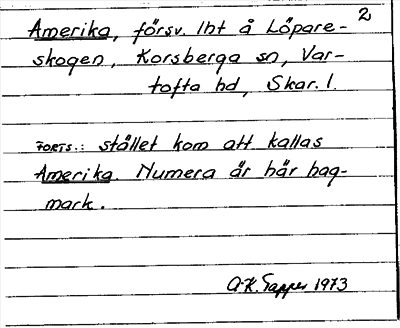 2
Amerika, försv. lht å Löpare-
skogen, Korsberga sn, Var-
tofta hd, Skar. l.
FORTS.: stället kom att kallas
Amerika. Numera är här hag-
mark.
A-K. Tapper 1973